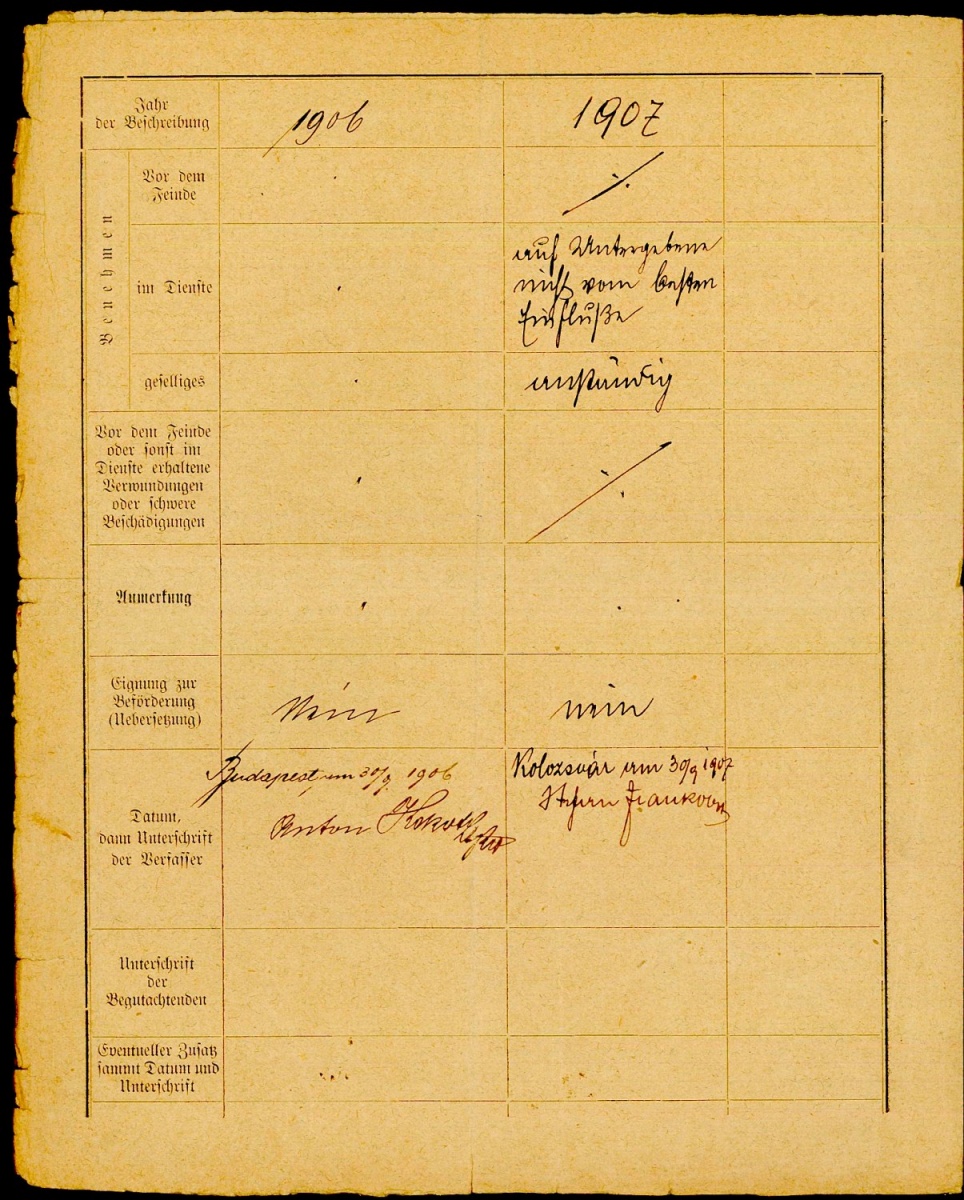 Jahr
der Beschreibung
1906
1907
Benehmen
Vor dem
Feinde
./.
im Dienste
auf Untergebene
nicht vom besten
Einfluße
geselliges
anständig
Vor dem Feinde
oder sonst im
Dienste erhaltene
Verwundungen
oder schwere
Beschädigungen
./.
Anmerkung
Eignung zur
Beförderung
(Uebersetzung)
Nein
nein
Datum,
dann Unterschrift
der Verfasser
Budapest, am 30/9 1906
Anton
Kolozsvár am 30/9 1907
Unterschrift
der
Begutachtenden
Eventueller Zusatz
sammt Datum und
Unterschrift